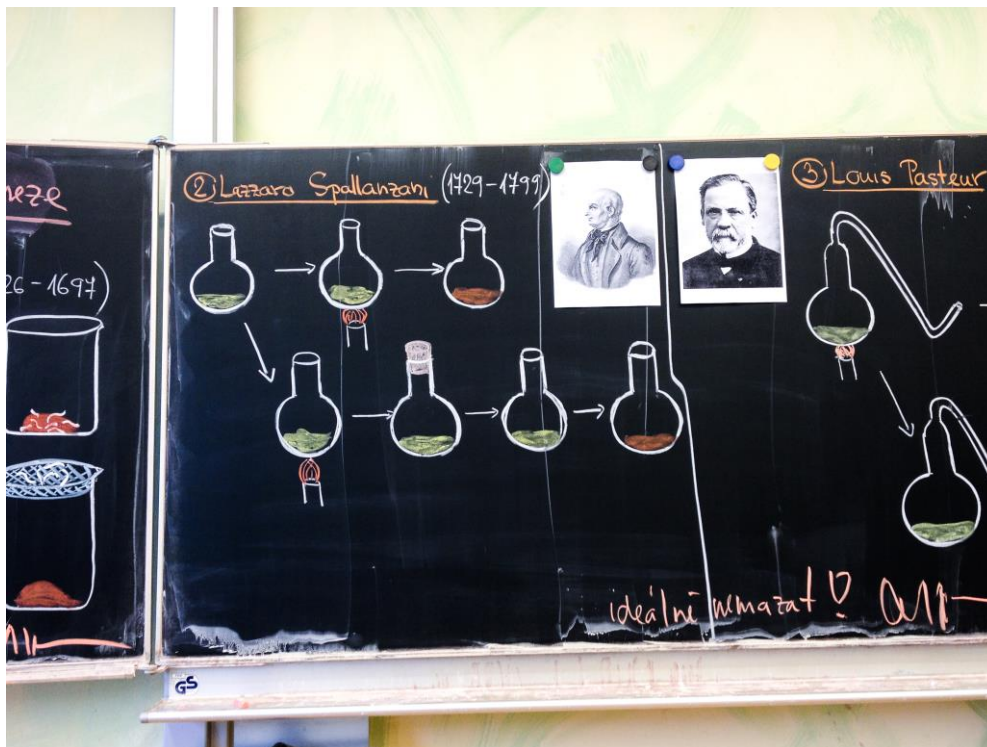 neze
26-1697)
② Lazzaro Spallanzani (1729-1799)
③ Louis Pasteur
ideálně nemazat!
GS